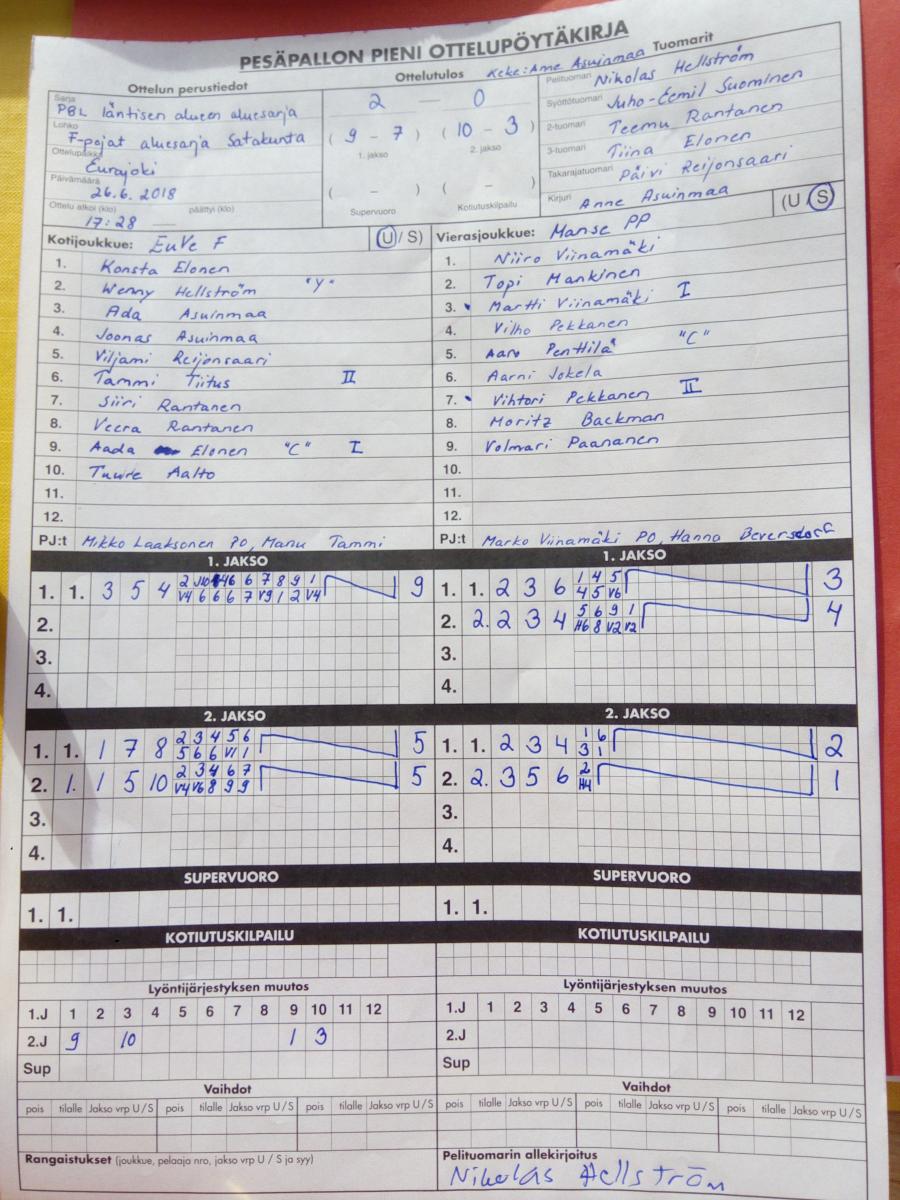 PESÄPALLON PIENI OTTELUPÖYTÄKIRJA
Ottelun perustiedot
Sarja PBL läntisen alueen aluesarja
Lohko F-pojat aluesarja Satakunta
Ottelupaikka Eurajoki
Päivämäärä 26.6.2018
Ottelu alkoi (klo) päättyi (klo)
17:28 —
Ottelutulos Keke: Anne Asuinmaa
2 — 0
( 9 - 7 ) ( 10 - 3 )
1. jakso 2. jakso
( - ) ( - )
Supervuoro Kotiutuskilpailu
Tuomarit
Pelituomari Nikolas Hellström
Syöttötuomari Juho-Eemil Suominen
2-tuomari Teemu Rantanen
3-tuomari Tiina Elonen
Takarajatuomari Päivi Reijonsaari
Kirjuri Anne Asuinmaa
Kotijoukkue: EuVe F (U / S)
1. Konsta Elonen
2. Wenny Hellström "Y"
3. Ada Asuinmaa
4. Joonas Asuinmaa
5. Viljami Reijonsaari
6. Tammi Tiitus II
7. Siiri Rantanen
8. Veera Rantanen
9. Aada Elonen "C" I
10. Tuure Aalto
11.
12.
PJ:t Mikko Laaksonen PO, Manu Tammi
Vierasjoukkue: Manse PP (U / S)
1. Niiro Viinamäki
2. Topi Mankinen
3. Martti Viinamäki I
4. Vilho Pekkanen
5. Aaro Penttilä "C"
6. Aarni Jokela
7. Vihtori Pekkanen II
8. Moritz Backman
9. Volmari Paananen
10.
11.
12.
PJ:t Marko Viinamäki PO, Hanna Beversdorf
1. JAKSO
1. 1. 3 5 4 6 7 8 9 1 9
V4 6 6 6 7 V9 1 2 V4
2.
3.
4.
1. JAKSO
1. 1. 2 3 6 1 4 5 3
4 5 V6
2. 2. 2 3 4 5 6 9 1 4
H6 8 V2 V2
3.
4.
2. JAKSO
1. 1. 1 7 8 2 3 4 5 6 5
5 6 6 V1 1
2. 1. 1 5 10 2 3 4 6 7 5
V4 V6 8 9 9
3.
4.
2. JAKSO
1. 1. 2 3 4 1 6 2
3 1
2. 2. 3 5 6 2 1
H4
3.
4.
SUPERVUORO
1. 1.
SUPERVUORO
1. 1.
KOTIUTUSKILPAILU
KOTIUTUSKILPAILU
Lyöntijärjestyksen muutos
1.J 1 2 3 4 5 6 7 8 9 10 11 12
2.J 9 10 1 3
Sup
Lyöntijärjestyksen muutos
1.J 1 2 3 4 5 6 7 8 9 10 11 12
2.J
Sup
Vaihdot
pois tilalle Jakso vrp U / S pois tilalle Jakso vrp U / S pois tilalle Jakso vrp U / S
Vaihdot
pois tilalle Jakso vrp U / S pois tilalle Jakso vrp U / S pois tilalle Jakso vrp U / S
Rangaistukset (joukkue, pelaaja nro, jakso vrp U / S ja syy)
Pelituomarin allekirjoitus
Nikolas Hellström